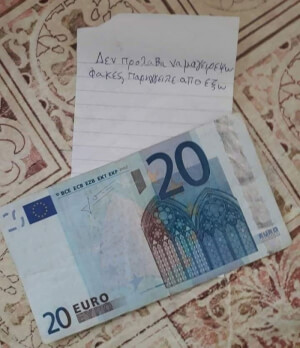 Δεν πρόλαβα να μαγειρέψω
φακές, παραγγείλτε απο έξω
BCE ECB EZB EKT EKP
20
EURO
20 EURO